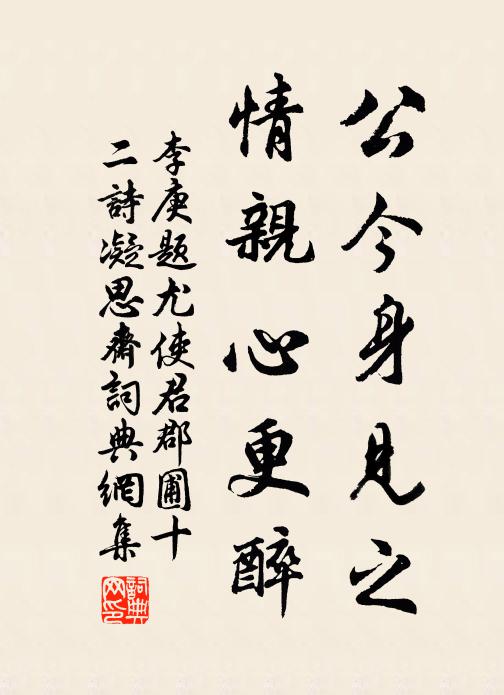 公今身見之
情親心更醉
李庚題尤使君郡圃十
二詩凝思齋詞典網集
詞典網印